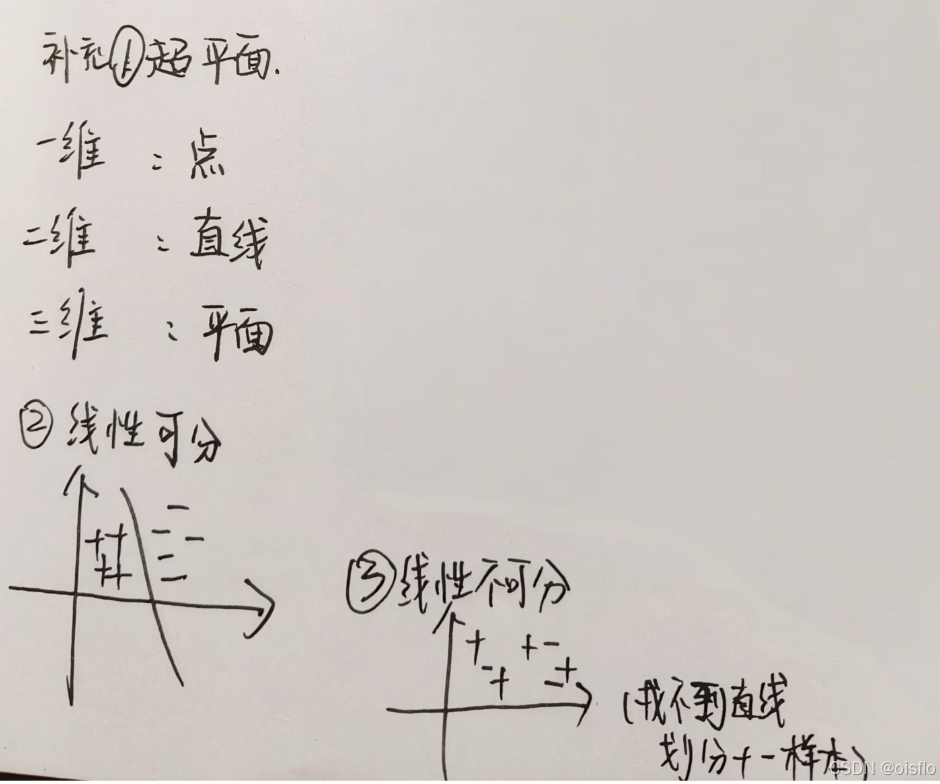 补充①超平面.
一维 : 点
二维 : 直线
三维 : 平面
② 线性可分
++
++
③线性不可分
(找不到直线
划分+-样本)
CSDN @oisflo